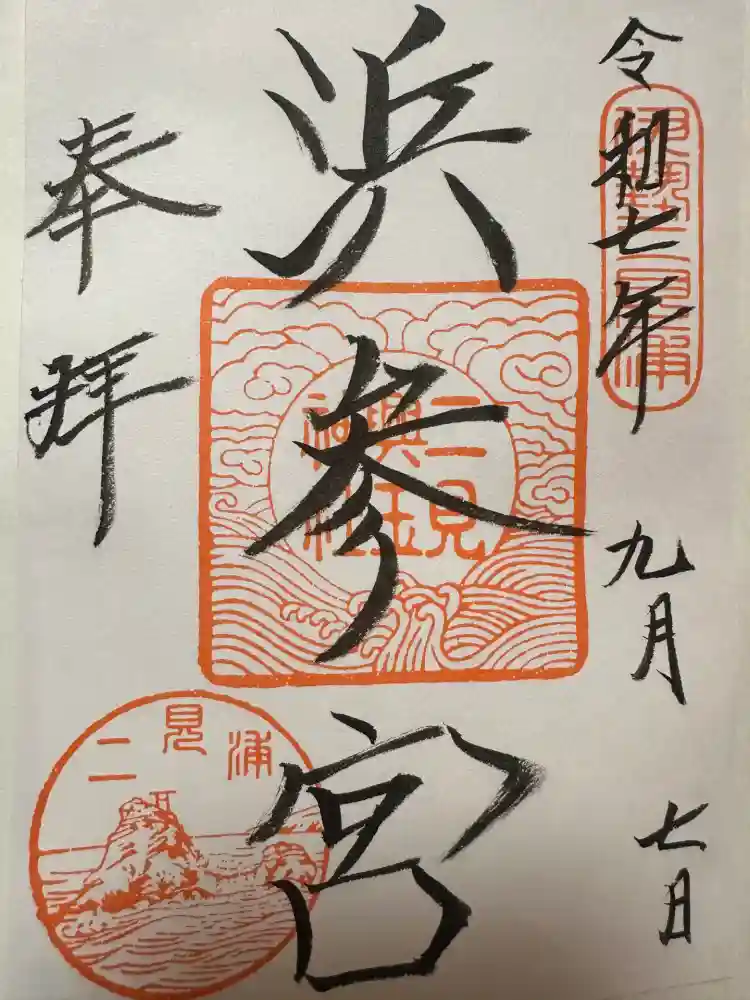 令和七年九月七日
伊勢二見浦
浜参宮
二見
興玉
神社
奉拝
二見浦